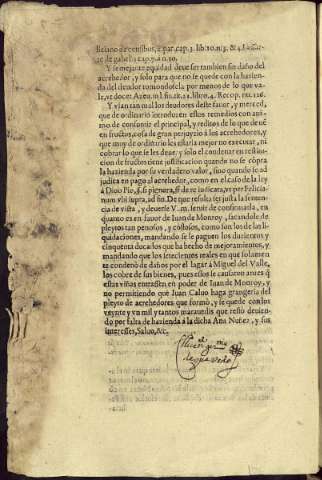 liciano de censibus, 2. par. cap. 3. lib. 10. n. 3. & 4.
te de gabellis cap. 7. a n. 30.
Y semejante equidad deve ser tambien sin daño del
acrehedor, y solo para que no se quede con la hazien-
da del deudor tomandosela por menos de lo que va-
le, ut docet Azeu. libro. 4. Recop.
Y usan tan mal los deudores deste favor, y merced,
que de ordinario introduzen estos remedios con ani-
mo de consumir el principal, y reditos de lo que de uè
en fructos, cosa de gran perjuyzio à los acrehedores, y
que muy de ordinario les estaria mejor no executar, ni
cobrar lo que se les deue, y solo el condenar en restitu-
cion de fructos tiene justificacion quando no se còpra
la hazienda por su verdadero valor, sino quando se ad
judica en pago al acrehedor, como en el caso de la ley
à Diuo Pio, y por Felicia-
num vbi supra, ad fin. De que resulta ser justa la senten-
cia de vista, y deuerse V. m. seruir de confirmarla, en
quanto es en fauor de Iuan de Monroy, sacandole de
pleytos tan penosos, y costosos, como son los de las li-
quidaciones, mandando se le paguen los duzientos y
cinquenta ducados que ha hecho de mejoramientos, y
mandando que los setecientos reales en que solamen-
te condenò de daños por el lagar à Miguel del Valle,
los cobre de sus bienes, pues estos se causaron antes q̃
estas viñas entrassen en poder de Iuan de Monroy, y
no permitiendo que Iuan Caluo haga grangeria del
pleyto de acrehedores que formò, y se quede con los
veynte y vn mil y tantos marauedis que restò deuien-
do por falta de hazienda à la dicha Ana Nuñez, y sus
interesses, Saluo, &c.